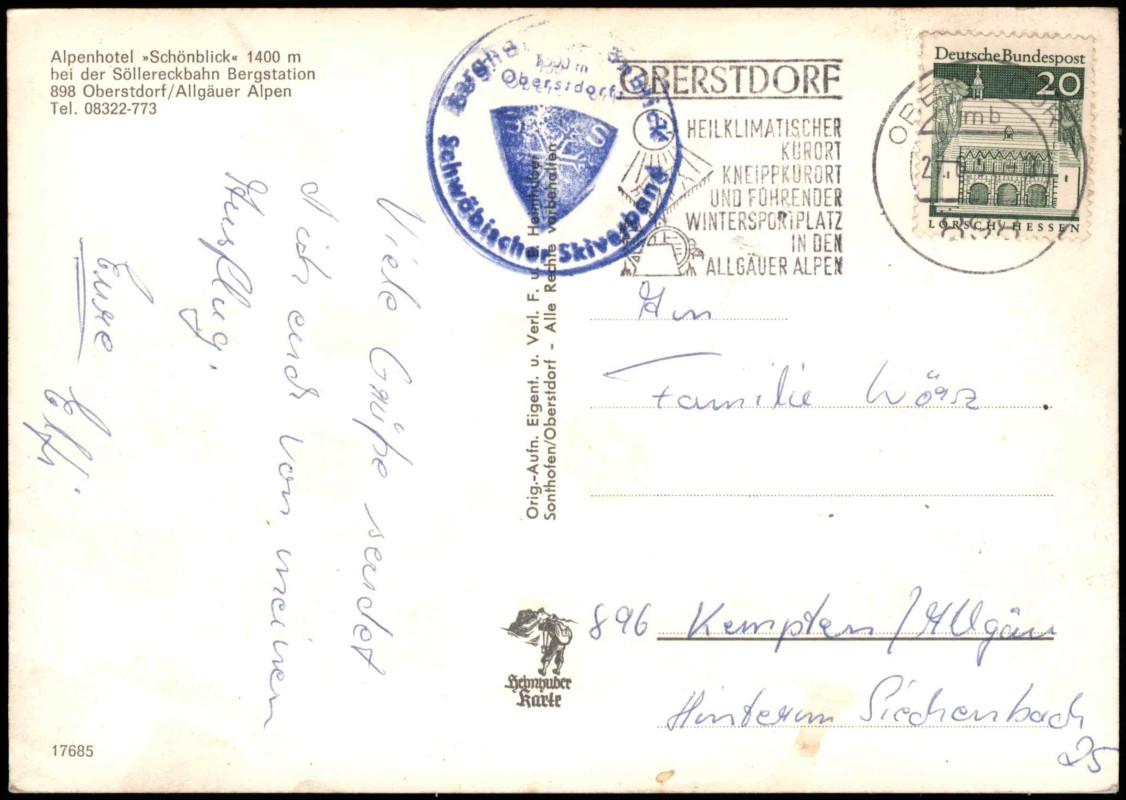 Alpenhotel »Schönblick« 1400 m
bei der Söllereckbahn Bergstation
898 Oberstdorf/Allgäuer Alpen
Tel. 08322-773
Schwäbischer Skiverband
Oberstdorf
OBERSTDORF
HEILKLIMATISCHER
KURORT
KNEIPPKURORT
UND FÜHRENDER
WINTERSPORTPLATZ
IN DEN
ALLGÄUER ALPEN
Deutsche Bundespost
20
LORSCH/HESSEN
mb
Viele Grüße sendet
von meinem
Ausflug.
Eure
Orig.-Aufn. Eigent. u. Verl. F. u. B. Heimhuber
Sonthofen/Oberstdorf - Alle Rechte vorbehalten
An
Familie
896 Kempten/Allgäu
Hinterm Siechenbach
25
Heimhuber
Karte
17685